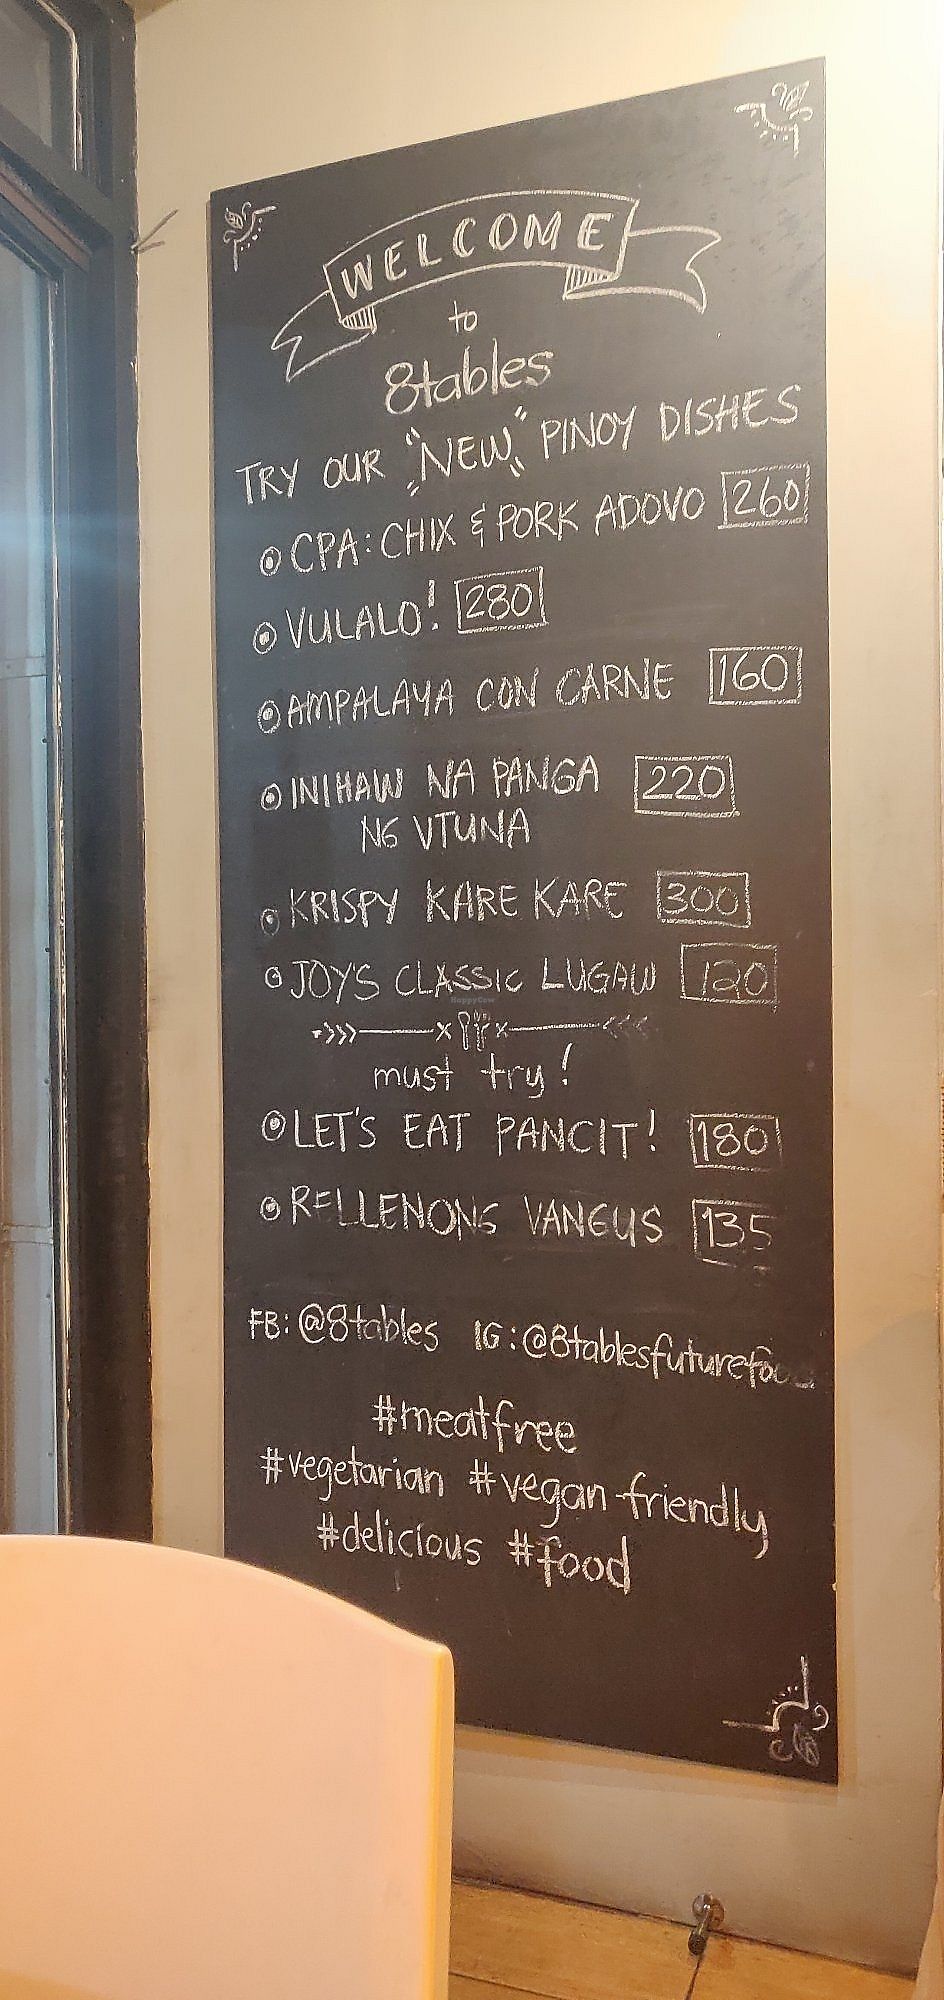 WELCOME
to
8tables
TRY OUR "NEW" PINOY DISHES
CPA: CHIX & PORK ADOVO 260
VULALO! 280
AMPALAYA CON CARNE 160
INIHAW NA PANGA 220
NG VTUNA
KRISPY KARE KARE 300
JOY'S CLASSIC LUGAW 120
HappyCow
must try!
LET'S EAT PANCIT! 180
RELLENONG VANGUS 135
FB: @8tables IG: @8tablesfuturefood
#meatfree
#vegetarian #vegan-friendly
#delicious #food